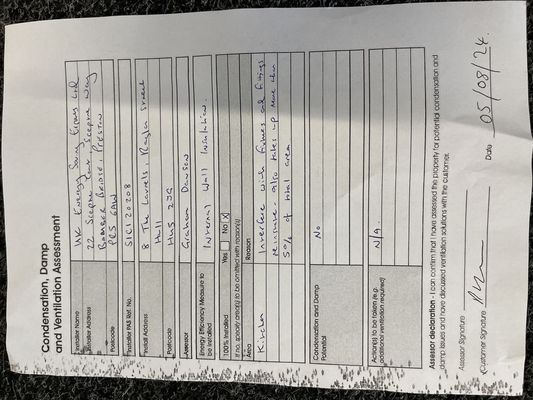 Condensation, Damp
and Ventilation Assessment
Installer Name UK Energy Saving Experts Ltd
Installer Address 22 Sceptre Court Sceptre Way
Bamber Bridge, Preston
Postcode PR5 6AW
Installer PAS Ref. No.
Install Address 8 The Laurels,
Hull
Postcode HU5
Assessor Graham Dawson
Energy Efficiency Measure to
be Installed Internal Wall Insulation.
100% Installed Yes No X
If no, specify area(s) to be omitted with reason(s)
Area Reason
Kitchen Interfere with fixtures and fittings
also takes up more than
50% of total area
Condensation and Damp
Potential No
Action(s) to be taken (e.g.
additional ventilation required) N/A.
Assessor declaration - I can confirm that I have assessed the property for potential condensation and
damp issues and have discussed ventilation solutions with the customer.
Assessor Signature
Customer Signature Date 05/08/24